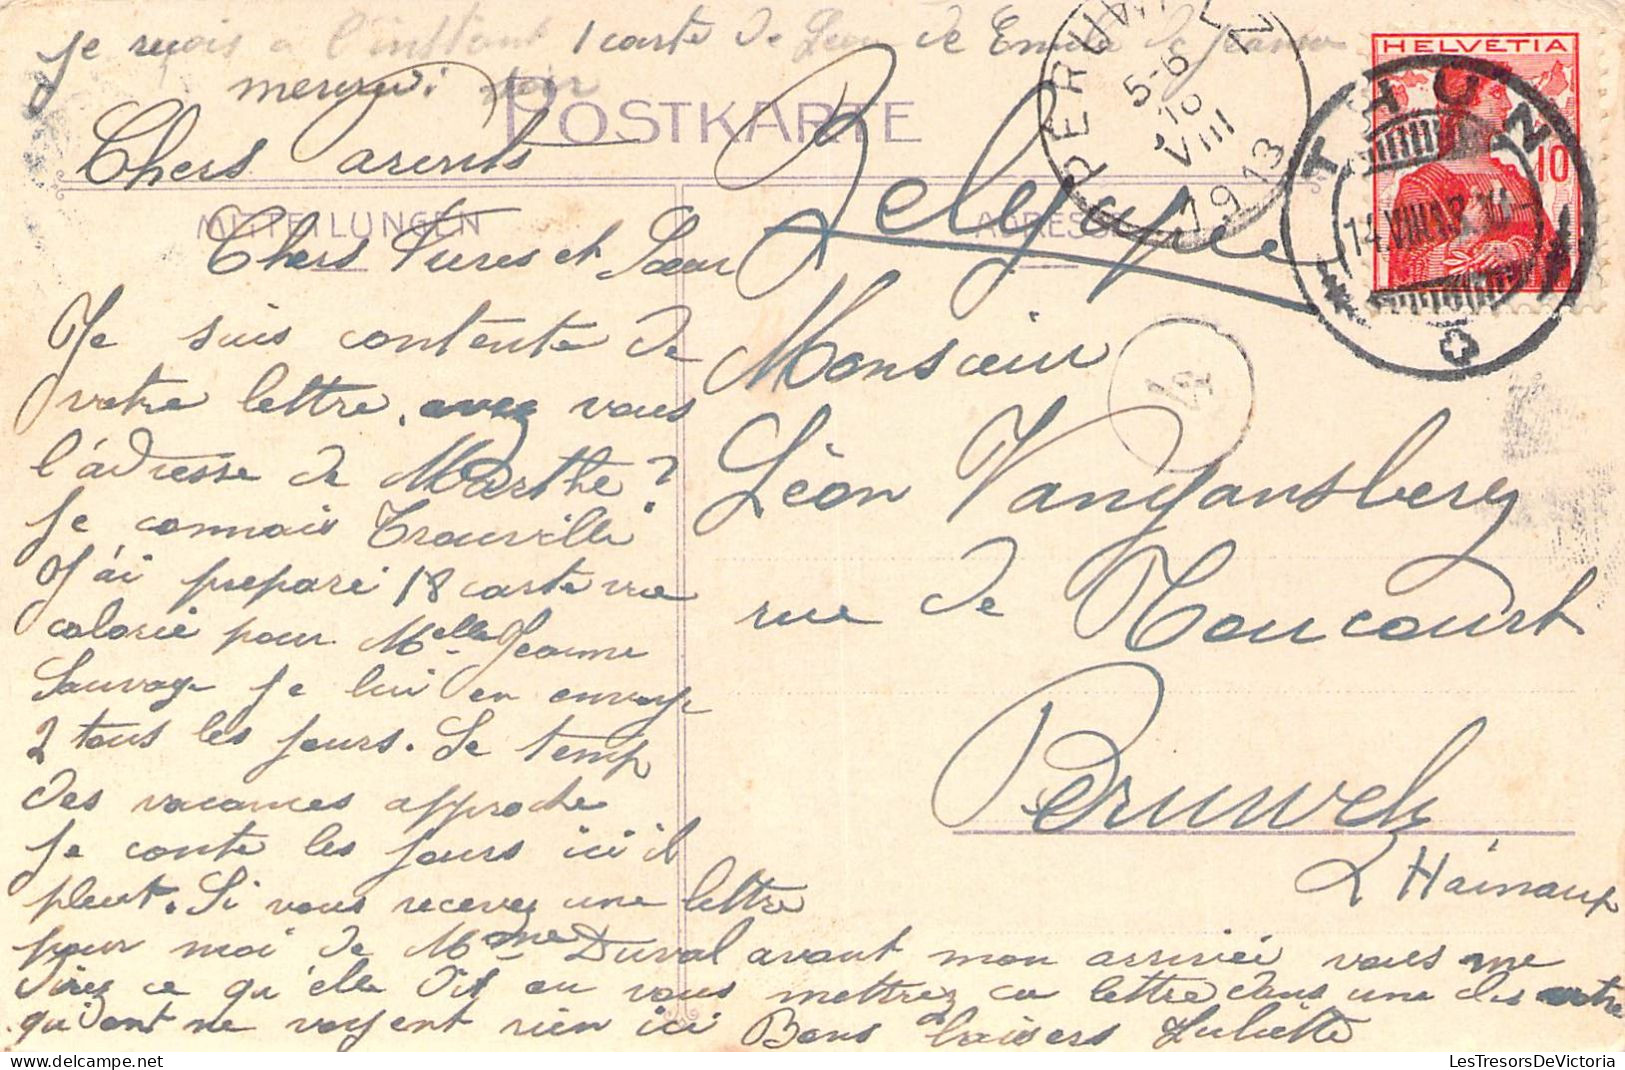 Je reçois a l'instant 1 carte de Leon de Emile de Jeanne
merci
POSTKARTE
Chers Parents
MITTEILUNGEN
ADRESSE
Chers Frères et Sœur
Je suis contente de
votre lettre. avez vous
l'adresse de Marthe?
Je connais Trouville
J'ai preparé 18 carte vue
coloriè pour Melle Jeanne
Sauvage je lui en envoye
2 tous les jours. Le temp
des vacances approche
Je conte les jours ici il
pleut. Si vous recevez une lettre
pour moi de Mme Duval avant mon arriveé vous me
direz ce qu'èlle dit ou vous mettrez ca lettre dans une des votre
qu'ont ne voyent rien ici Bons baisers Juliette
Belgique
Monsieur
Lèon Vangansberg
rue de Roucourt
Peruwelz
Hainaux
HELVETIA
10
PERUWELZ
5-6
VIII
1913
THUN
14.VIII.13.
LesTresorsDeVictoria
LesTresorsDeVictoria.delcampe.net